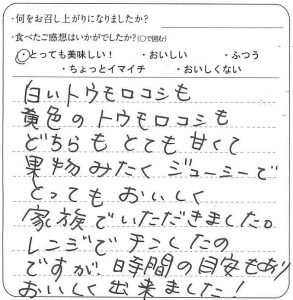 ・何をお召し上がりになりましたか？
・食べたご感想はいかがでしたか？(〇で囲む)
・とっても美味しい！ ・おいしい ・ふつう
・ちょっとイマイチ ・おいしくない
白いトウモロコシも
黄色のトウモロコシも
どちらも とても 甘くて
果物みたく ジューシーで
とっても おいしく
家族でいただきました。
レンジで チンしたの
ですが、時間の目安もあり
おいしく出来ました！